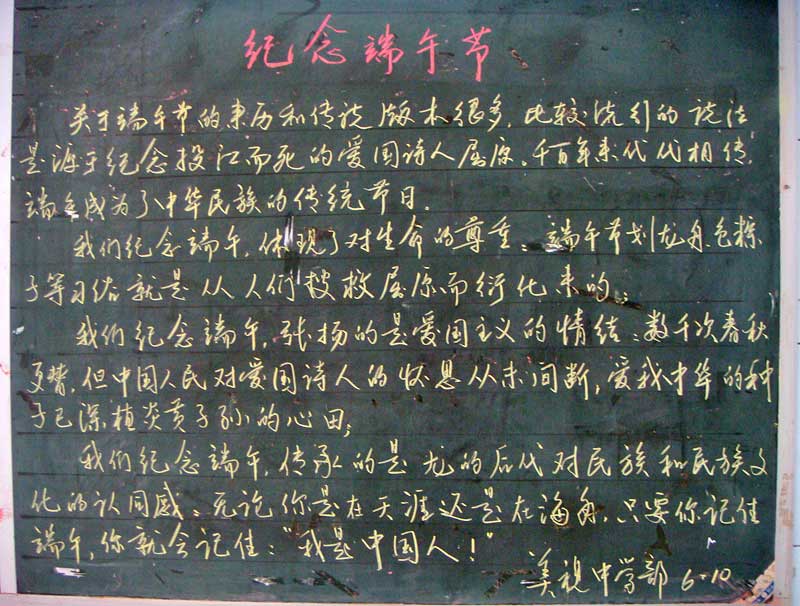 纪念端午节
关于端午节的来历和传说版本很多，比较流行的说法
是源于纪念投江而死的爱国诗人屈原。千百年来代代相传，
端午成为了中华民族的传统节日。
我们纪念端午，体现了对生命的尊重：端午节划龙舟包粽
子等习俗就是从人们搜救屈原而衍化来的；
我们纪念端午，张扬的是爱国主义的情结：数千次春秋
更替，但中国人民对爱国诗人的怀思从未间断，爱我中华的种
子已深植炎黄子孙的心田；
我们纪念端午，传承的是龙的后代对民族和民族文
化的认同感：无论你是在天涯还是在海角，只要你记住
端午，你就会记住：“我是中国人！”
美视中学部 6·10